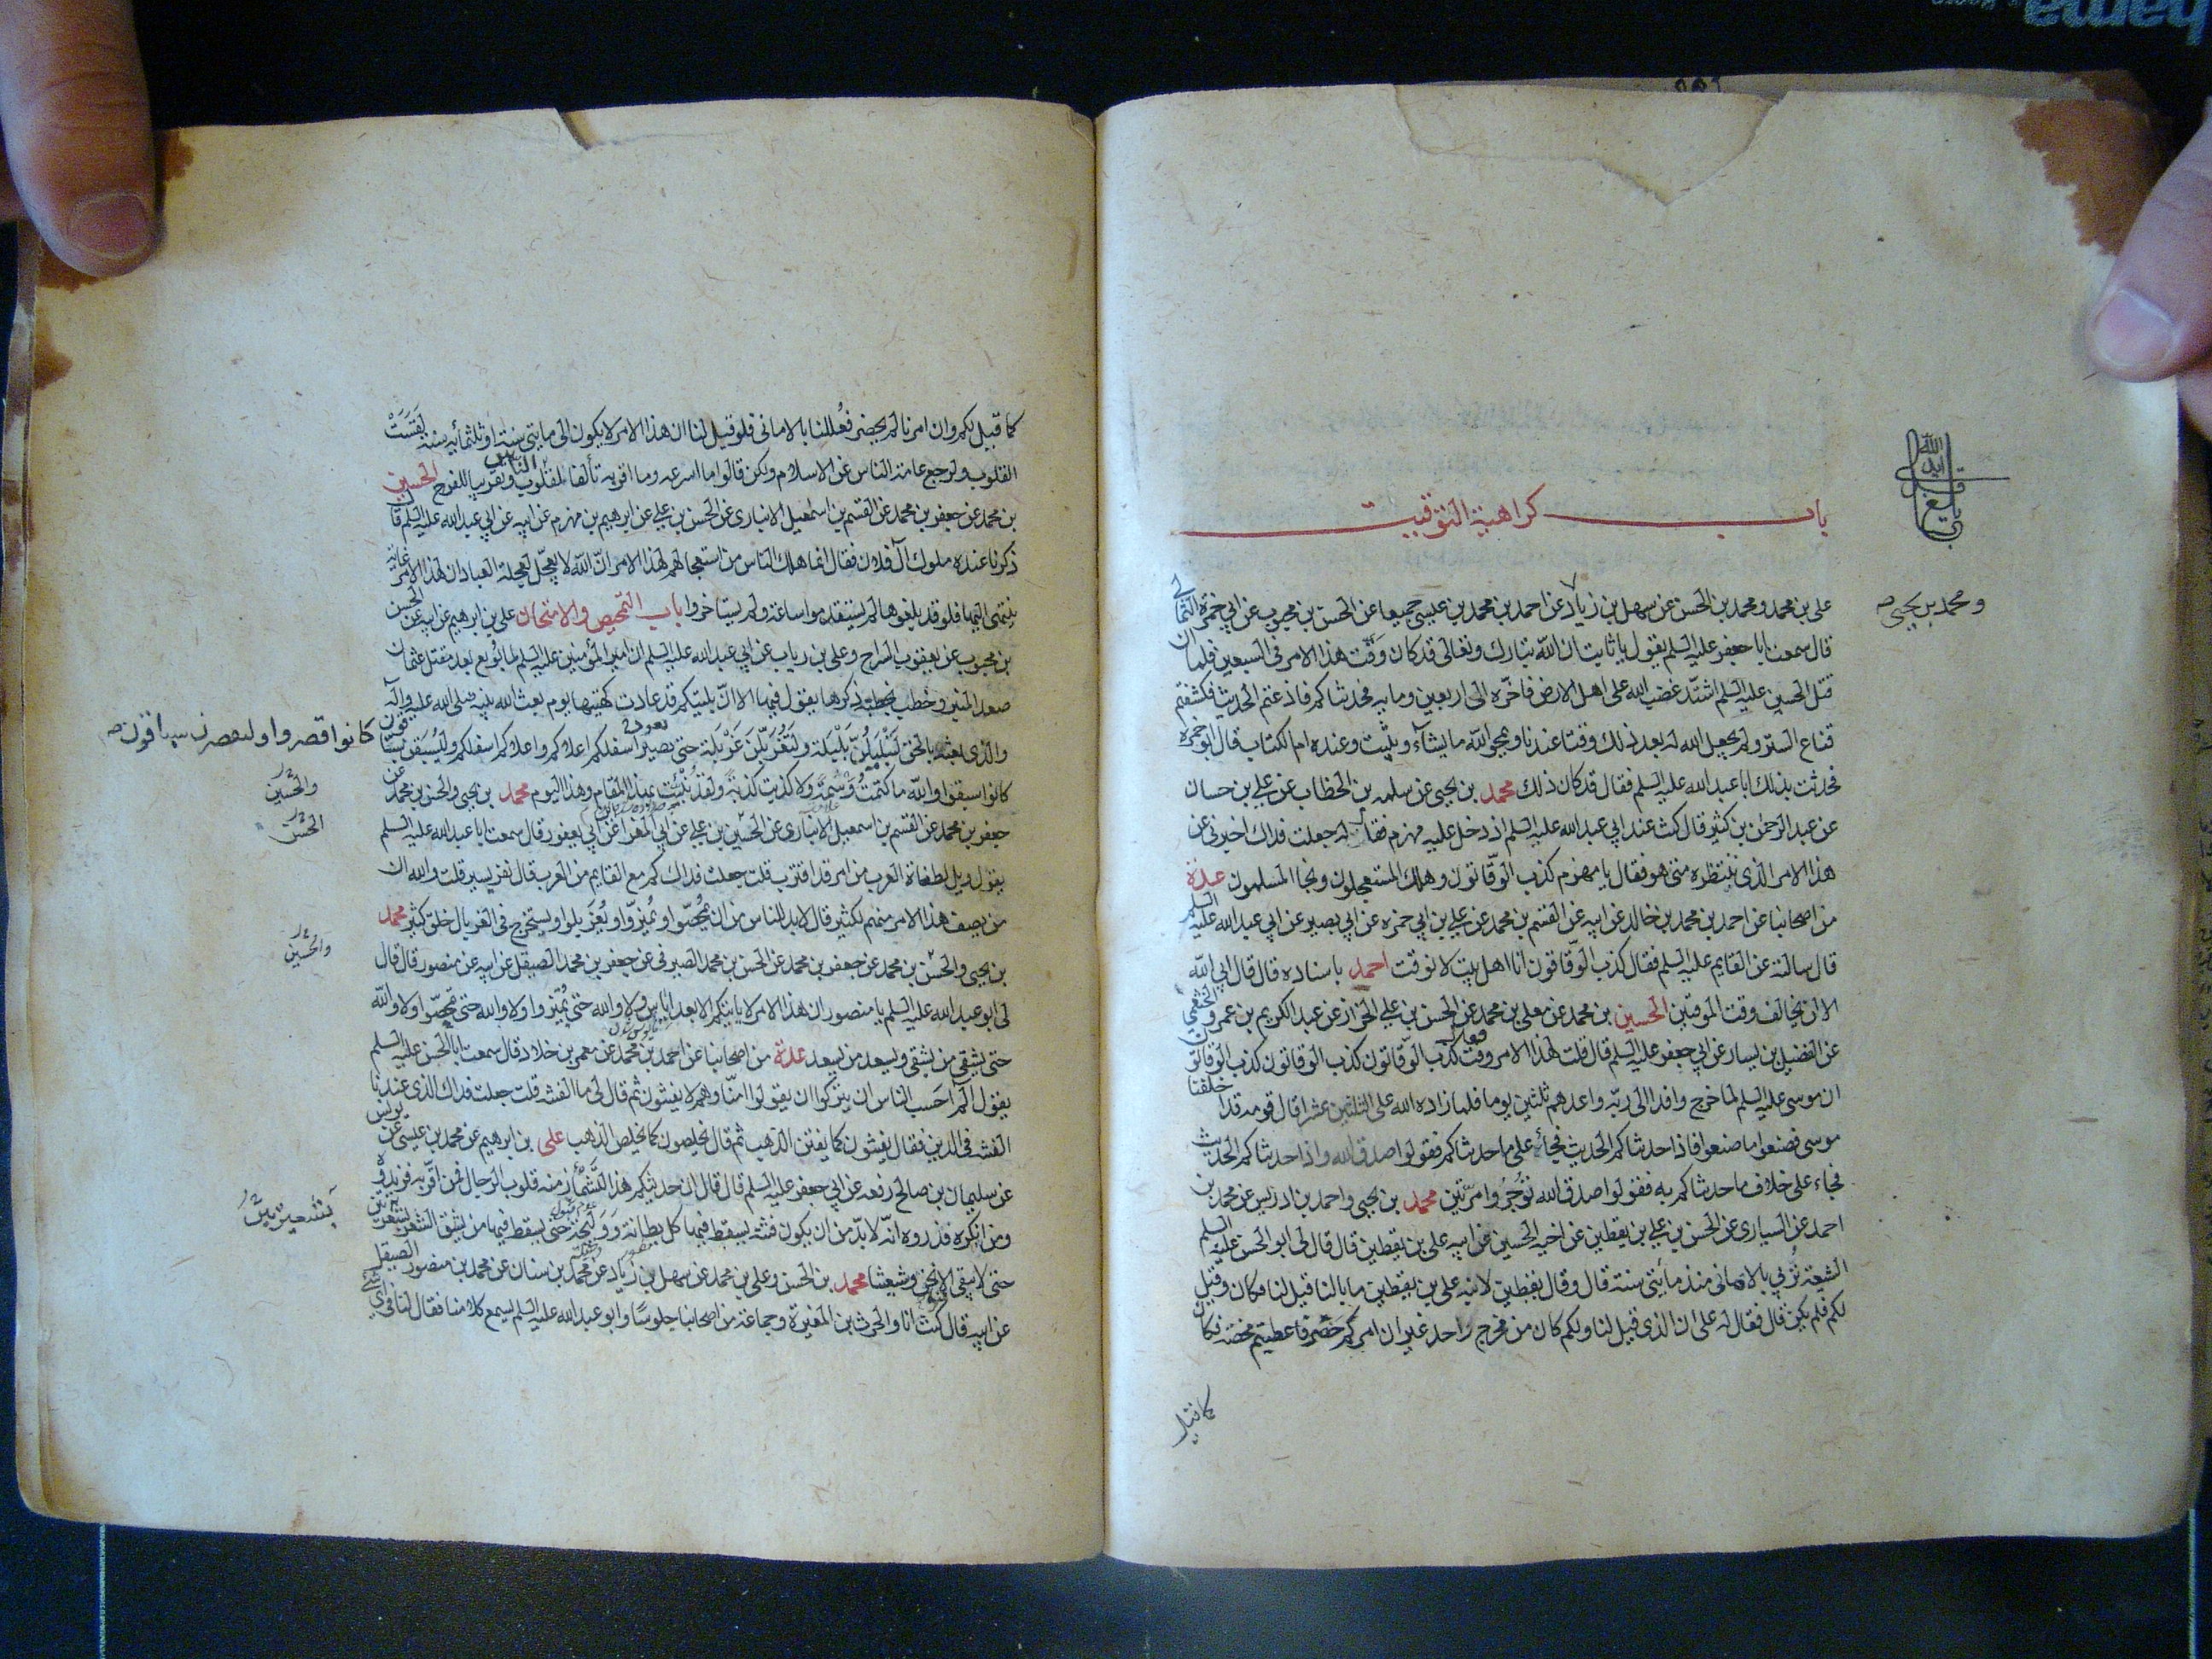 باب كراهية التوقيت
بلغ قبالا ايده الله
ومحمد بن يحيى صح
علي بن محمد ومحمد بن الحسن عن سهل بن زياد عن احمد بن محمد بن عيسى جميعا عن الحسن بن محبوب عن ابي حمزة الثمالي
قال سمعت ابا جعفر عليه السلم يقول يا ثابت ان الله تبارك وتعالى قد كان وقّت هذا الامر في السبعين فلما ان
قتل الحسين عليه السلم اشتدّ غضب الله على اهل الارض فاخّره الى اربعين وماية فحدثناكم فاذعتم الحديث فكشفتم
قناع الستر ولم يجعل الله له بعد ذلك وقتا عندنا ويمحو الله ما يشاء ويثبت وعنده ام الكتاب قال ابو حمزة
فحدثت بذلك ابا عبد الله عليه السلم فقال قد كان ذلك محمد بن يحيى عن سلمه بن الخطاب عن علي بن حسان
عن عبد الرحمن بن كثير قال كنت عند ابي عبد الله عليه السلم اذ دخل عليه مهزم فقال له جعلت فداك اخبرني عن
هذا الامر الذي ننتظره متى هو فقال يا مهزم كذب الوقّاتون وهلك المستعجلون ونجا المسلمون عدة
من اصحابنا عن احمد بن محمد بن خالد عن ابيه عن القسم بن محمد عن علي بن ابي حمزه عن ابي بصير عن ابي عبد الله عليه السلم
قال سالته عن القايم عليه السلم فقال كذب الوقّاتون انا اهل بيت لا نوقت احمد باسناده قال قال ابى الله
الا ان يخالف وقت الموقتين الحسين بن محمد عن معلى بن محمد عن الحسن بن علي الخزاز عن عبد الكريم بن عمرو الخثعمي
عن الفضيل بن يسار عن ابي جعفر عليه السلم قال قلت لهذا الامر وقت فقال كذب الوقّاتون كذب الوقاتون كذب الوقاتون
ان موسى عليه السلم لما خرج وافدا الى ربّه واعدهم ثلثين يوما فلما زاده الله على الثلثين عشرا قال قومه قد اخلفنا
موسى فصنعوا ما صنعوا فاذا حدثناكم الحديث فجاء على ما حدثناكم فقولوا صدق الله واذا حدثناكم الحديث
فجاء على خلاف ما حدثناكم به فقولوا صدق الله تؤجروا مرّتين محمد بن يحيى واحمد بن ادريس عن محمد بن
احمد عن السياري عن الحسن بن علي بن يقطين عن اخيه الحسين عن ابيه علي بن يقطين قال قال لي ابو الحسن عليه السلم
الشيعة تُربي بالاماني منذ مأيتي سنة قال وقال يقطين لابنه علي بن يقطين ما بالنا قيل لنا فكان وقيل
لكم فلم يكن قال فقال له علي ان الذي قيل لنا ولكم كان من مخرج واحد غير ان امركم حضر فاعطيتم محضه فكان
كما قيل
كما قيل لكم وان امرنا لم يحضر فعُلّلنا بالاماني فلو قيل لنا ان هذا الامر لا يكون الى مايتي سنة او ثلثمائه سنه لقست
القلوب ولرجع عامة الناس عن الاسلام ولكن قالوا ما اسرعه وما اقربه تألفا لقلوب الناس وتقريبا للفرج الحسين
بن محمد عن جعفر بن محمد عن القسم بن اسمعيل الانباري عن الحسن بن علي عن ابرهيم بن مهزم عن ابيه عن ابي عبد الله عليه السلم قال
ذكرنا عنده ملوك آل فلان فقال انما هلك الناس من استعجالهم لهذا الامر انّ الله لا يعجّل لعجلة العباد ان لهذا الامر غاية
ينتهى اليها فلو قد بلغوها لم يستقدموا ساعة ولم يستاخروا باب التمحيص والامتحان علي بن ابرهيم عن ابيه عن الحسن
بن محبوب عن يعقوب السراج وعلي بن رياب عن ابي عبد الله عليه السلم ان امير المؤمنين عليه السلم لما بُويع بعد مقتل عثمان
صعد المنبر وخطب بخطبة ذكرها يقول فيها الا انّ بليتكم قد عادت كهيئتها يوم بعث الله نبيه صلى الله عليه واله
والذي بعثه بالحق لتبلبلنّ بلبلة ولتغربلنّ غربلة حتى يعود اسفلكم اعلاكم واعلاكم اسفلكم وليسبقن سباقون
كانوا قصروا وليقصرن سباقون صح
كانوا سبقوا والله ما كتمت وسمة ولا كذبت كذبة ولقد نبئت بهذا المقام وهذا اليوم محمد بن يحيى والحسن بن محمد عن
والحسين
جعفر بن محمد عن القسم بن اسمعيل الانباري عن الحسين بن علي عن ابي المغرا عن ابي يعفور قال سمعت ابا عبد الله عليه السلم
الحسن
يقول ويل لطغاة العرب من امر قد اقترب قلت جعلت فداك كم مع القايم من العرب قال نفر يسير قلت والله ان
من يصف هذا الامر منهم لكثير قال لا بد للناس من ان يمحّصوا ويُميّزوا ويُغربلوا ويستخرج في الغربال خلق كثير محمد
بن يحيى والحسن بن محمد عن جعفر بن محمد عن الحسن بن محمد الصيرفي عن جعفر بن محمد الصيقل عن ابيه عن منصور قال قال
والحسين
لي ابو عبد الله عليه السلم يا منصور ان هذا الامر لا ياتيكم الا بعد اياس ولا والله حتى يُميّزوا ولا والله حتى تمحّصوا ولا والله
حتى يشقى من يشقى ويسعد من يسعد عدة من اصحابنا عن احمد بن محمد عن معمر بن خلاد قال سمعت ابا الحسن عليه السلم
يقول الم احسب الناس ان يتركوا ان يقولوا امنّا وهم لا يفتنون ثم قال لي ما الفتنه قلت جعلت فداك الذي عندنا
الفتنه في الدين فقال يفتنون كما يفتن الذهب ثم قال يخلصون كما يخلص الذهب علي بن ابرهيم عن محمد بن عيسى عن يونس
عن سليمان بن صالح رفعه عن ابي جعفر عليه السلم قال قال ان حديثكم هذا لتشمأز منه قلوب الرجال فمن اقرّ به فزيدوه
ومن انكره فذروه انّه لا بدّ من ان يكون فتنه يسقط فيها كل بطانة ووليجة حتى يسقط فيها من يشق الشعر بشعرتين
حتى لا يبقى الا نحن وشيعتنا محمد بن الحسن وعلي بن محمد عن سهل بن زياد عن محمد بن سنان عن محمد بن منصور الصيقل
عن ابيه قال كنت انا والحرث بن المغيرة وجماعة من اصحابنا جلوسًا وابو عبد الله عليه السلم يسمع كلامنا فقال لنا في اي شئ